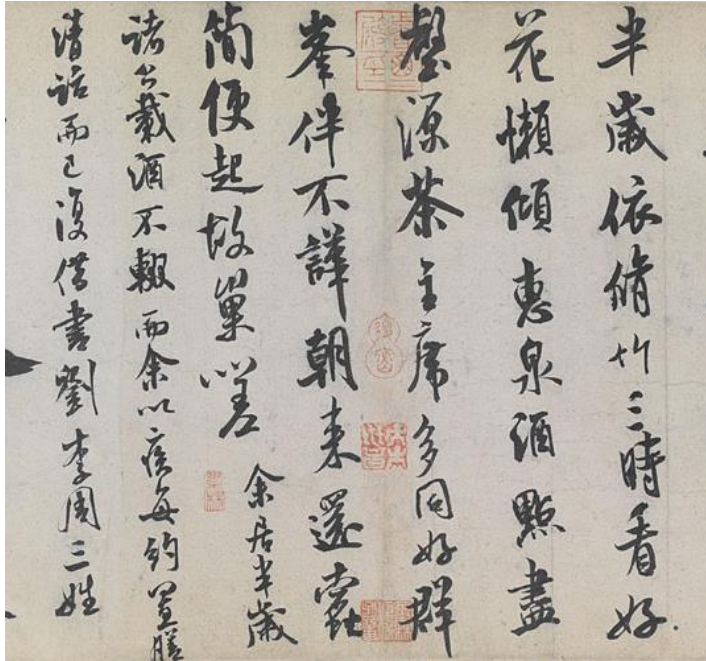 半歲依脩竹三時看好
花懶傾惠泉酒點盡
壑源茶主席多同好群
峯伴不譁朝來還蠹
簡便起故巢嗟
余居半歲
諸公載酒不輟而余以疾每約置膳
清話而已復借書劉李周三姓